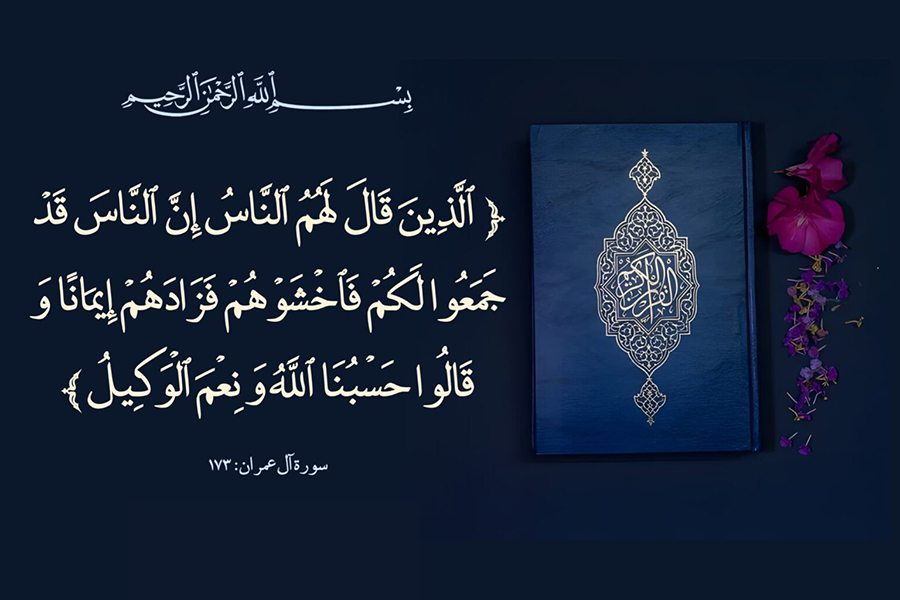 بِسْمِ ٱللَّهِ ٱلرَّحْمَٰنِ ٱلرَّحِيمِ
﴿ ٱلَّذِينَ قَالَ لَهُمُ ٱلنَّاسُ إِنَّ ٱلنَّاسَ قَدْ
جَمَعُوا لَكُمْ فَٱخْشَوْهُمْ فَزَادَهُمْ إِيمَانًا وَ
قَالُوا حَسْبُنَا ٱللَّهُ وَنِعْمَ ٱلْوَكِيلُ ﴾
سورة آل عمران: ١٧٣
القرآن الكريم